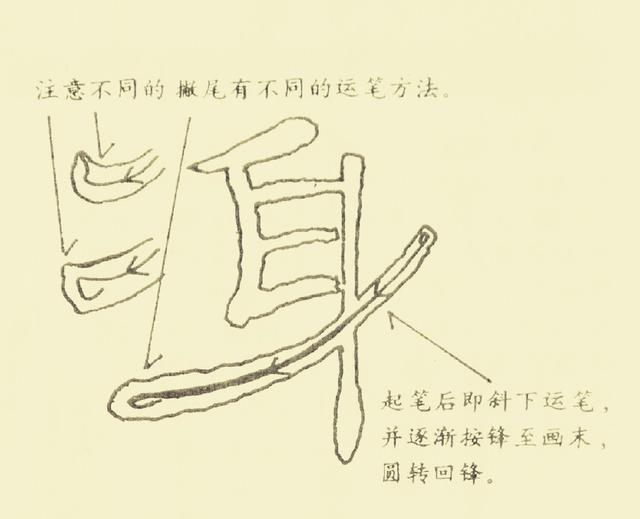 注意不同的撇尾有不同的运笔方法。
身
起笔后即斜下运笔，
并逐渐按锋至画末，
圆转回锋。